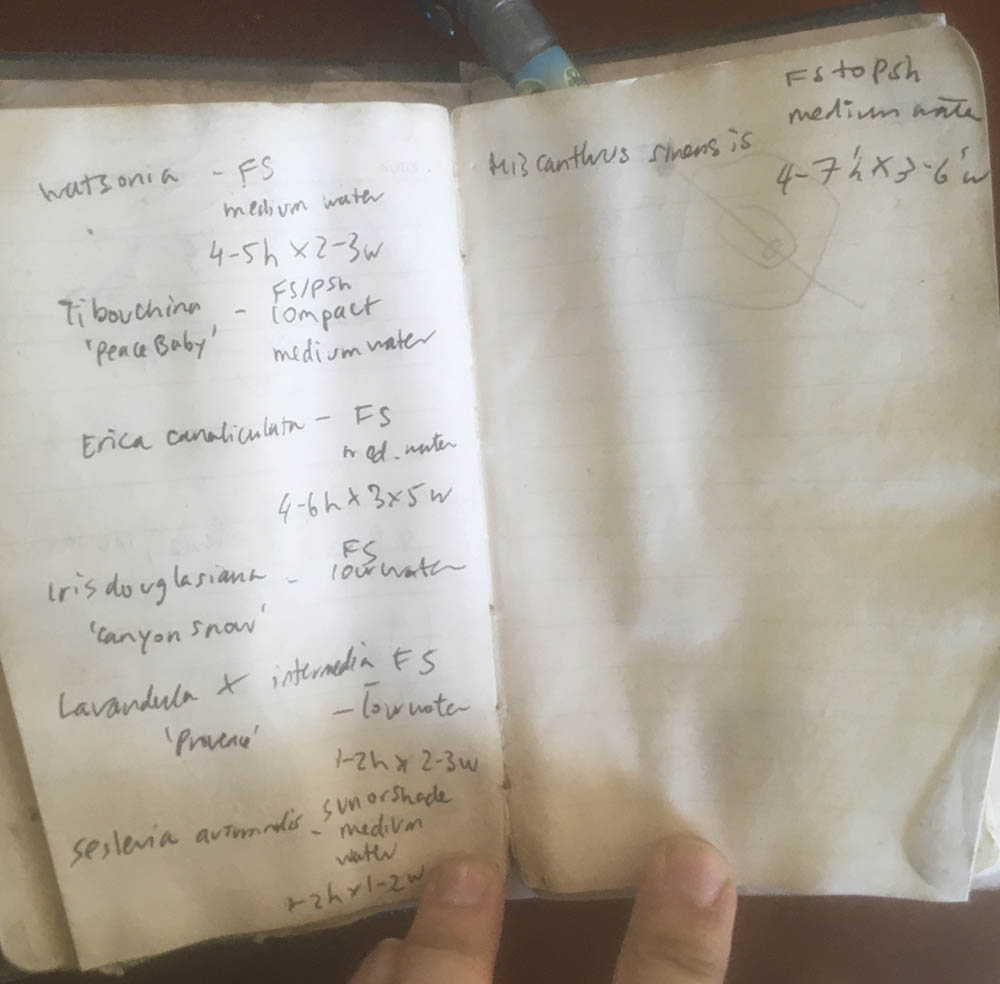 Watsonia - FS
medium water
4-5h x 2-3w
Tibouchina - FS/psh
'Peace Baby' compact
medium water
Erica canaliculata - FS
med. water
4-6h x 3x5w
Iris douglasiana - FS
'canyon snow' low water
Lavandula x intermedia FS
'Provence' - low water
1-2h x 2-3w
Sesleria autumnalis - sun or shade
medium
water
1-2h x 1-2w
FS to psh
medium water
Miscanthus sinensis
4-7'h x 3-6'w